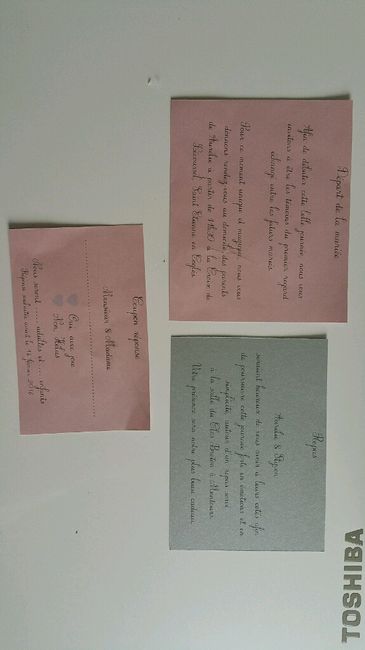 Départ de la mariée
Afin de débuter cette belle journée, nous vous
invitons à être les témoins du premier regard
échangé entre les futurs mariés.
Pour ce moment unique et magique, nous vous
donnons rendez-vous au domicile des parents
de Aurélie à partir de à la Croix de
Saint Etienne en Coglès
Repas
Aurélie &
seraient heureux de vous avoir à leurs côtés afin
de poursuivre cette journée forte en émotions et en
autour d'un repas servi
à la salle du Clos Breton à
Votre présence sera notre plus beau cadeau.
Coupon réponse
Monsieur & Madame
Oui, avec joie
Non, Hélas
Nous serons ..... adultes et ..... enfants
Réponse souhaitée avant le 2016
TOSHIBA